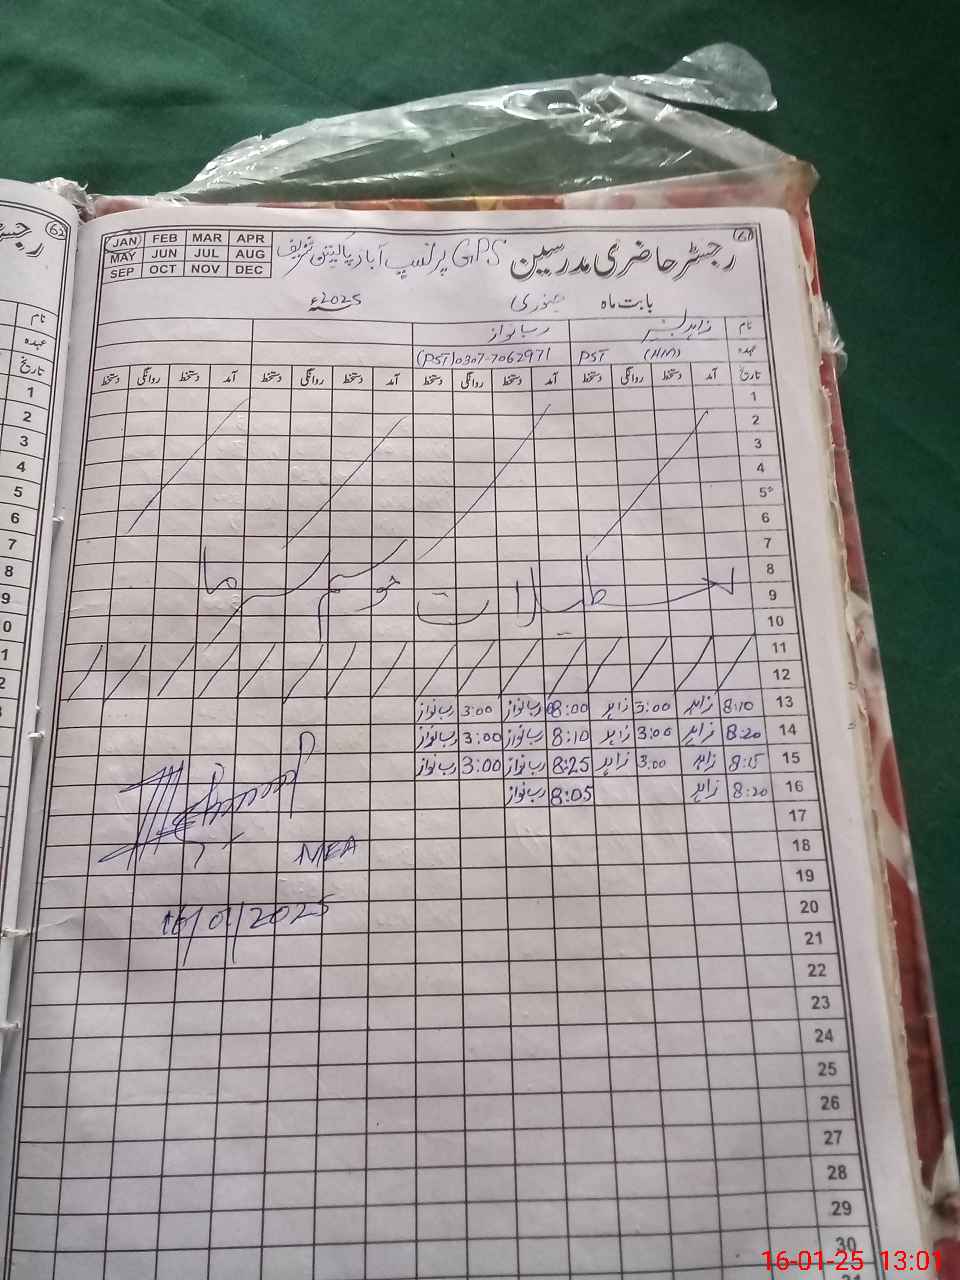 62
رجسٹر
نام
عہدہ
تاریخ
1
2
3
4
5
6
7
8
9
0
1
2
JAN FEB MAR APR
MAY JUN JUL AUG
SEP OCT NOV DEC
61
رجسٹر حاضری مدرسین GPS پرنسپ آباد پاکپتن شریف
بابت ماہ جنوری 2025ء
نام زاہد بشیر رب نواز
عہدہ PST (HM) (PST) 0307-7062971
تاریخ آمد دستخط روانگی دستخط آمد دستخط روانگی دستخط آمد دستخط روانگی دستخط آمد دستخط روانگی دستخط
1
2
3
4
5
6
7
8
تعطیلات موسم سرما
9
10
11
12
13 8:10 زاہد 3:00 زاہد 8:00 رب نواز 3:00 رب نواز
14 8:20 زاہد 3:00 زاہد 8:10 رب نواز 3:00 رب نواز
15 8:15 زاہد 3:00 زاہد 8:25 رب نواز 3:00 رب نواز
16 8:20 زاہد 8:05 رب نواز
17
18
MEA
19
20
16/01/2025
21
22
23
24
25
26
27
28
29
30
31
16-01-25 13:01